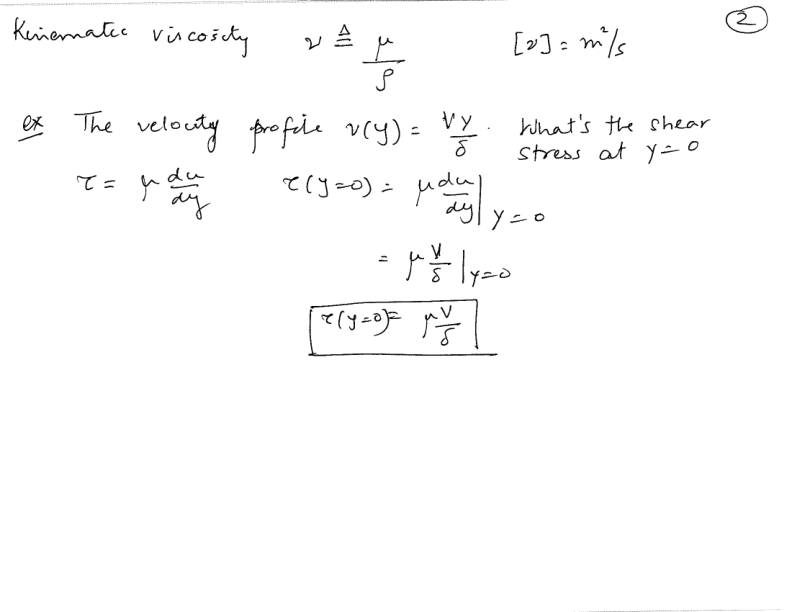 ②
Kinematic viscosity ν ≜ μ/ρ [ν] = m²/s
ex The velocity profile v(y) = Vy/δ. What's the shear stress at y=0
τ = μ du/dy τ(y=0) = μ du/dy |y=0
= μ V/δ |y=0
τ(y=0) = μV/δ